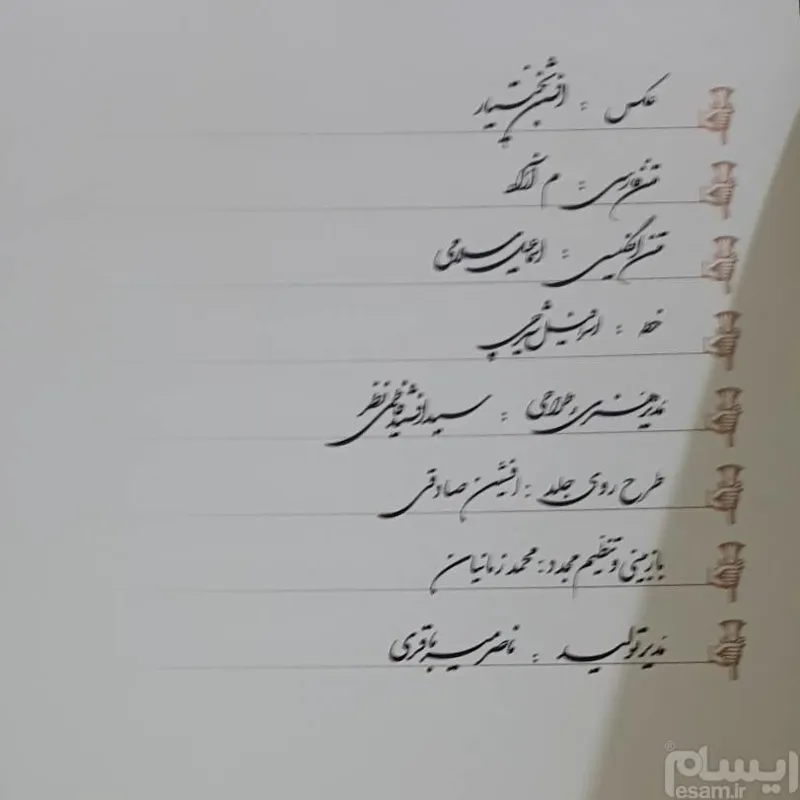 عکس : افشین بختیار
متن فارسی : م آزاد
متن انگلیسی : اسماعیل سلامی
خط : اسرافیل شیرچی
مدیر هنری و طراحی : سید افشید فاطمی نظر
طرح روی جلد : افشین صادقی
بازبینی و تنظیم مجدد : محمد زمانیان
مدیر تولید : ناصر میرباقری
ایسام®
esam.ir